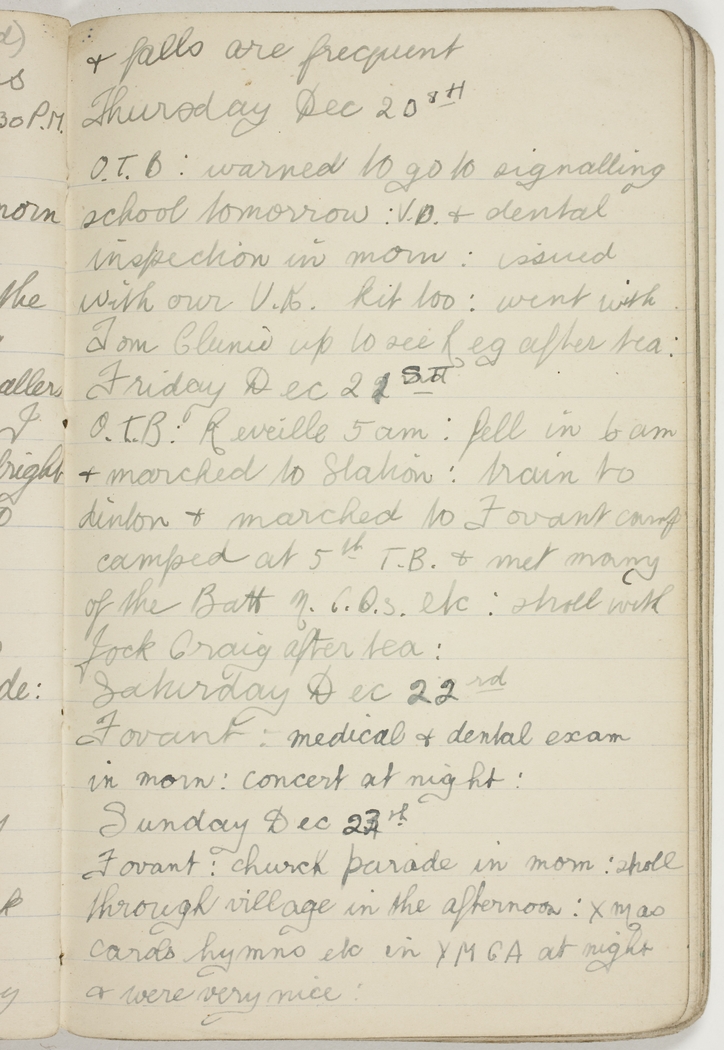 d)
s
30 P.M.
morn
the
allers
J
bright
de:
y
k
y
+ falls are frequent
Thursday Dec 20TH
O.T.B: warned to go to signalling
school tomorrow: V.D. + dental
inspection in morn: issued
with our U.K. kit too: went with
Tom Clunie up to see Reg after tea:
Friday Dec 21ST
O.T.B: Reveille 5am: fell in 6am
+ marched to Station: train to
dinton + marched to Fovant camp
camped at 5th T.B. + met many
of the Batt N.C.O.s. etc: stroll with
Jock Craig after tea:
Saturday Dec 22rd
Fovant: medical + dental exam
in morn: concert at night:
Sunday Dec 23rd
Fovant: church parade in morn: stroll
through village in the afternoon: Xmas
carols hymns etc in YMCA at night
+ were very nice: